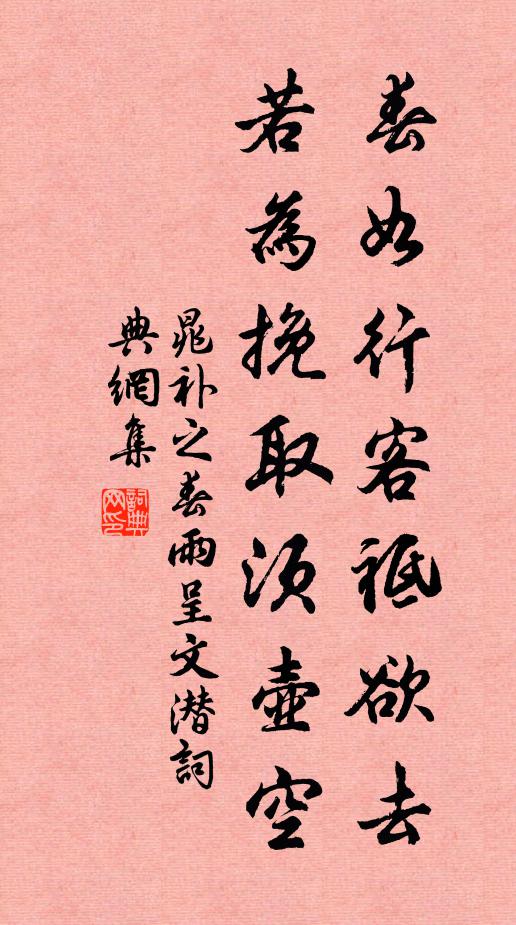 春如行客祗欲去
若為挽取須壺空
晁补之春雨呈文潜詞
典網集
詞典网印